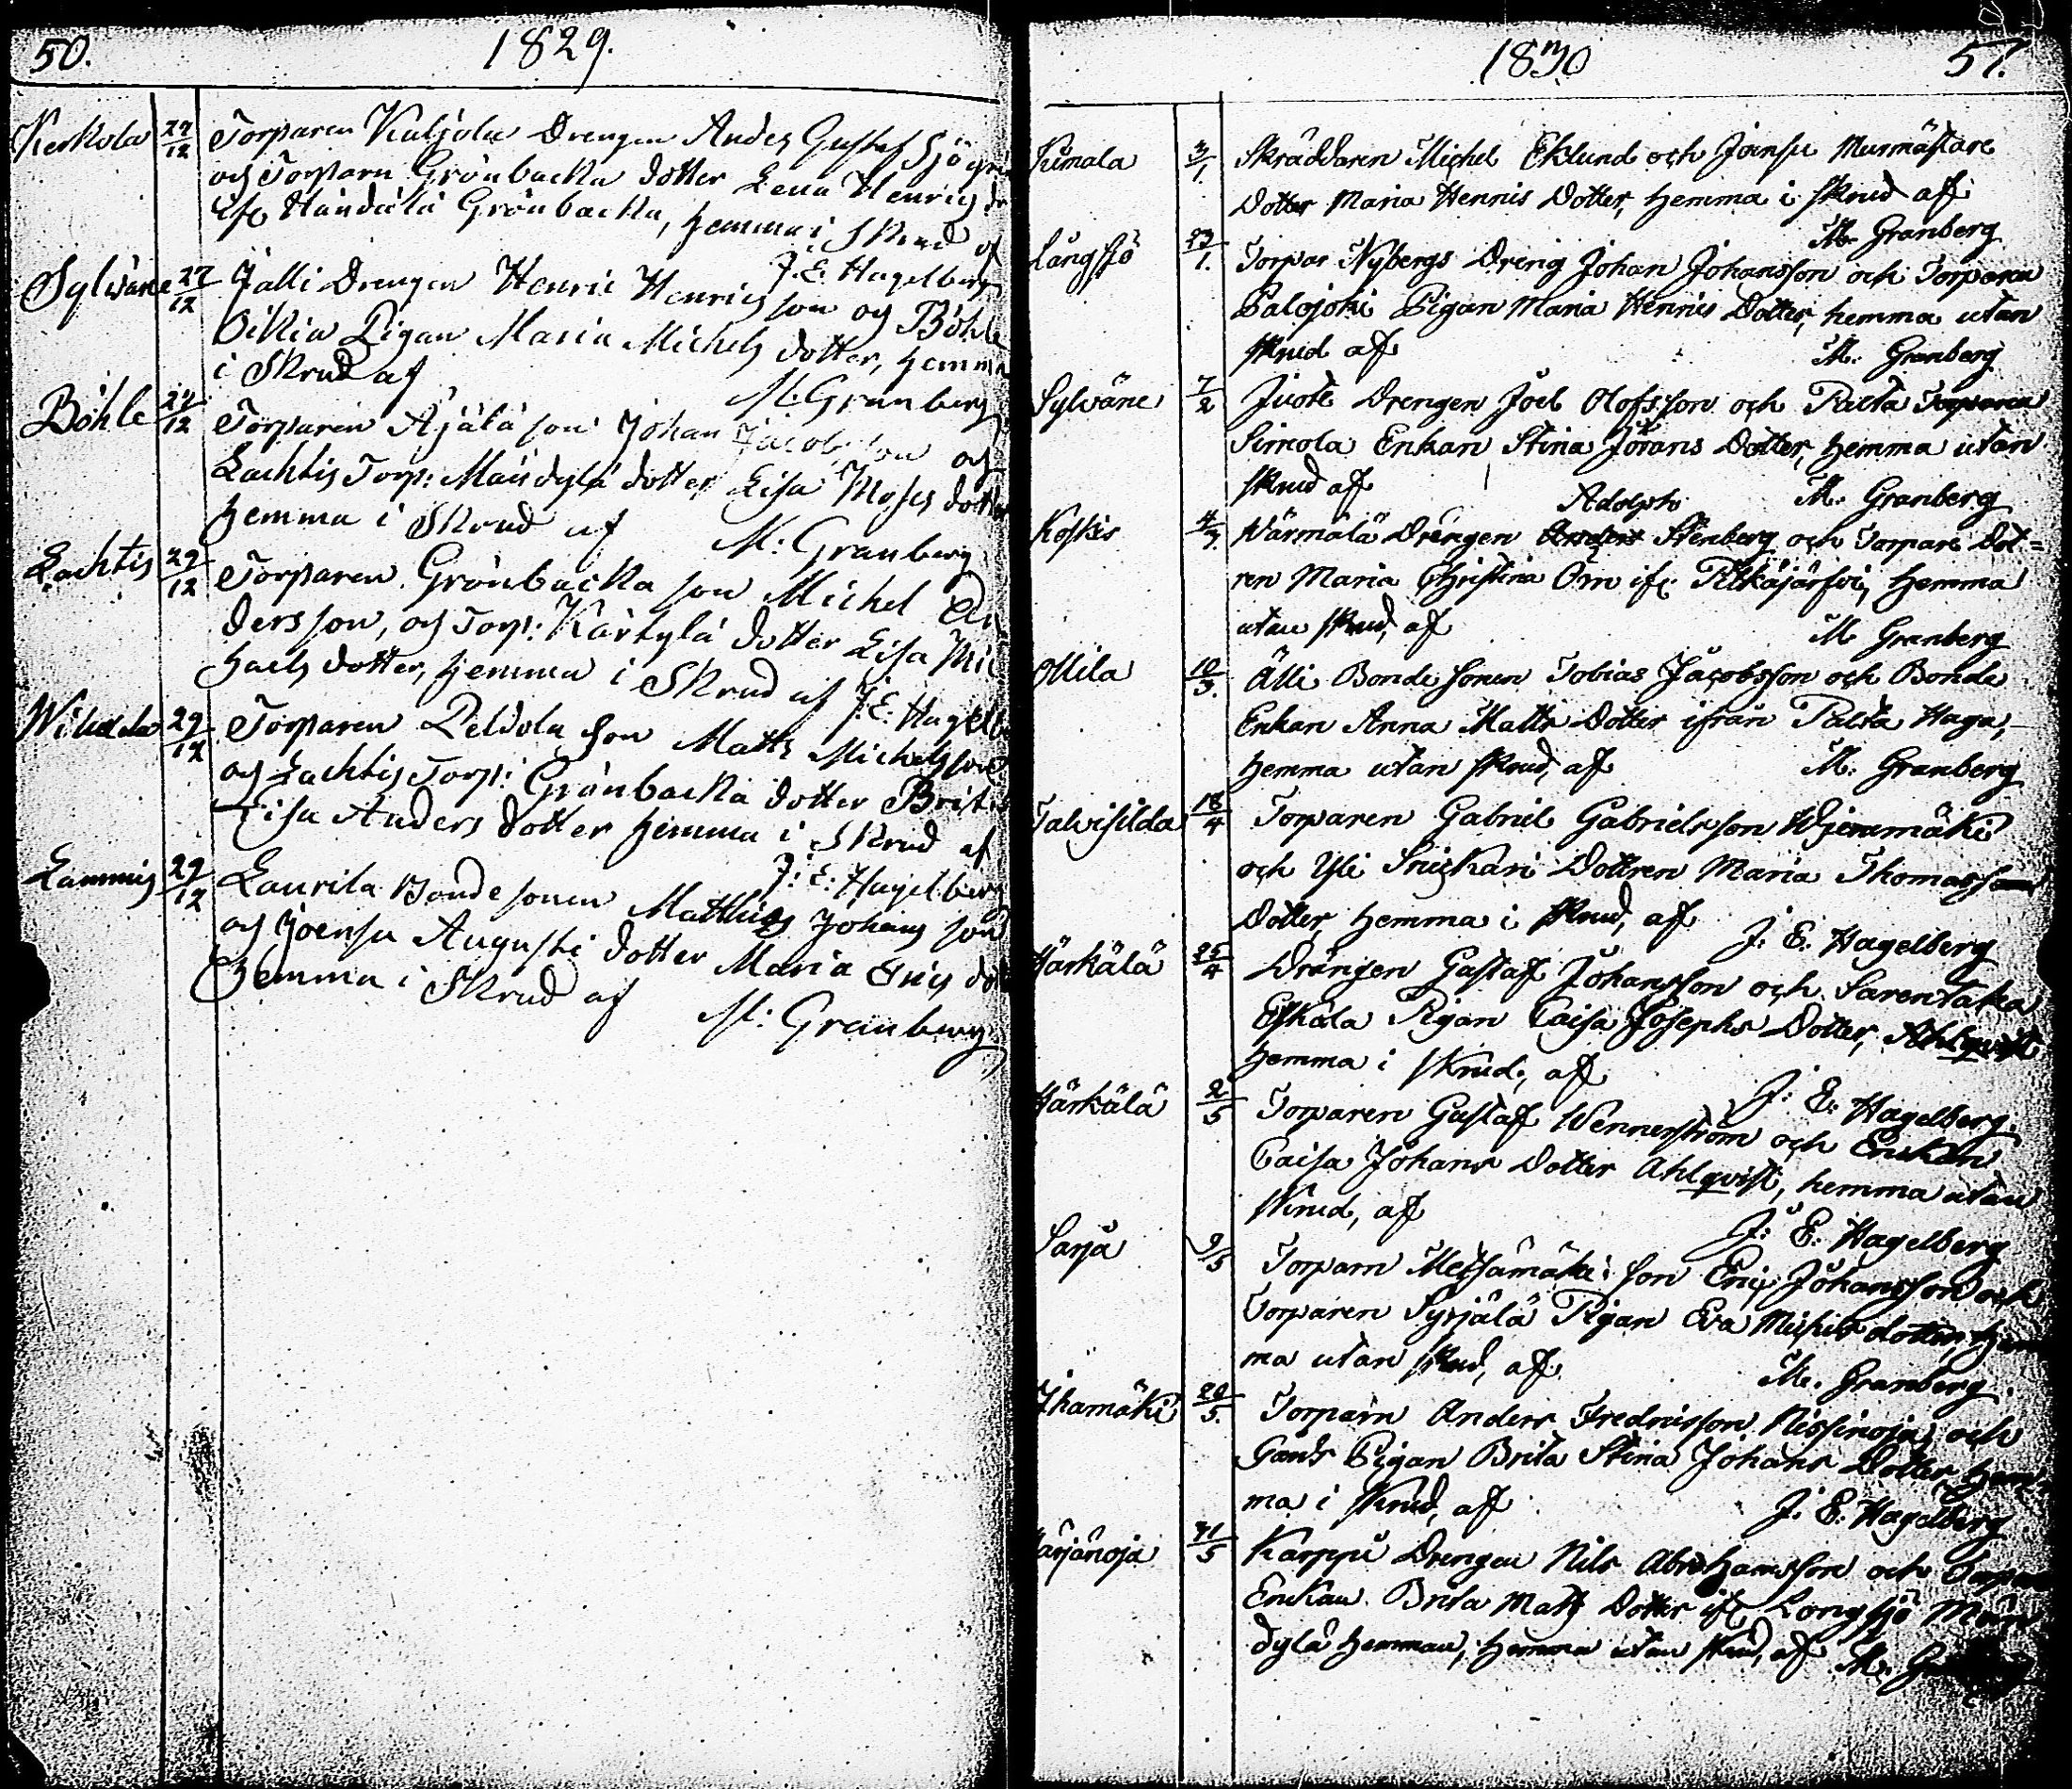 50. 1829.
Kerkola 27/12 Torparen Kuljola Drengen Anders Gustaf Sjögre
og Torparn Grönbacka dotter Lena Henrics do
ifr. Händälä Grönbacka, hemma i Skrud af
J: E: Hagelberg
Sylväne 27/12 Jalli Drengen Henric Henricsson og Böhle
Oikia Pigan Maria Michels dotter, hemma
i Skrud af
M: Granberg
Böhle 27/12 Torparen Äjälä son Johan Jacobsson og
Lachtis Torp: Mändylä dotter Lisa Moses dotter
hemma i Skrud af M: Granberg
Lachtis 29/12 Torparen Grönbacka son Michel An
dersson, og Torp: Kärkylä dotter Lisa Mic
haels dotter, hemma i Skrud af J: E: Hagelbe
29/12 Torparen Peldola son Matts Michelsson
og Lachtis Torp: Grönbacka dotter Brita
Lisa Anders dotter hemma i Skrud af
J: E: Hagelberg
Lammis 29/12 Laurila Bondesonen Matthias Johans son
og Joensu Augusti dotter Maria Erics dot
hemma i Skrud af
M: Granberg
1830 51.
Jumala 3/1. Skräddaren Michel Eklund och Joensu Murmästare
Dotter Maria Henrics Dotter, hemma i skrud af
M. Granberg
Långsjö 23/1. Torpar Nybergs Dreng Johan Johansson och Torparen
Palojoki Pigan Maria Henrics Dotter, hemma utan
skrud af M. Granberg
Sylväne 7/2 Juote Drengen Joel Olofsson och Palta Torparen
Simola Enkan Stina Jörans Dotter, hemma utan
skrud af M: Granberg
Adolph
Koskis 4/3. Wärmälä Drengen Anders Stenberg och Torpare Dot=
ren Maria Christina Örn ifr. Pitkäjärfvi, hemma
utan skrud, af
M Granberg
Ollila 10/3. Älli Bonde sonen Tobias Jacobsson och Bonde
Enkan Anna Matts Dotter ifrån Palta Haga,
hemma utan skrud, af M: Granberg
Talvisilda 18/4 Torparen Gabriel Gabrielsson Wjemmäki
och Yli Snickari Dottren Maria Thomasson
Dotter, hemma i skrud, af J. E. Hagelberg
Härkälä 25/4 Drängen Gustaf Johansson och Sarentaka
Eskola Pigan Caisa Josephs Dotter, Ahlqvist
hemma i skrud, af
J: E: Hagelberg
Härkälä 2/5 Torparen Gustaf Wennerström och Enkan
Caisa Johans Dotter Ahlqvist, hemma utan
skrud, af
J: E: Hagelberg
Sarja 9/5 Torparn Metsämäki son Eric Johansson och
Torparen Syrjälä Pigan Eva Michels dotter, hem
ma utan skrud, af
M. Granberg.
Ihamäki 20/5. Torparn Anders Fredricsson Nissinoja, och
Gards Pigan Brita Stina Johans Dotter, hem
ma i skrud, af
J. E. Hagelberg
Harjanoja 31/5 Karppi Drengen Nils Abrahamsson och Torpare
Enkan Brita Matts Dotter ifr Longsjö Män
dylä hemman, hemma utan skrud, af M.